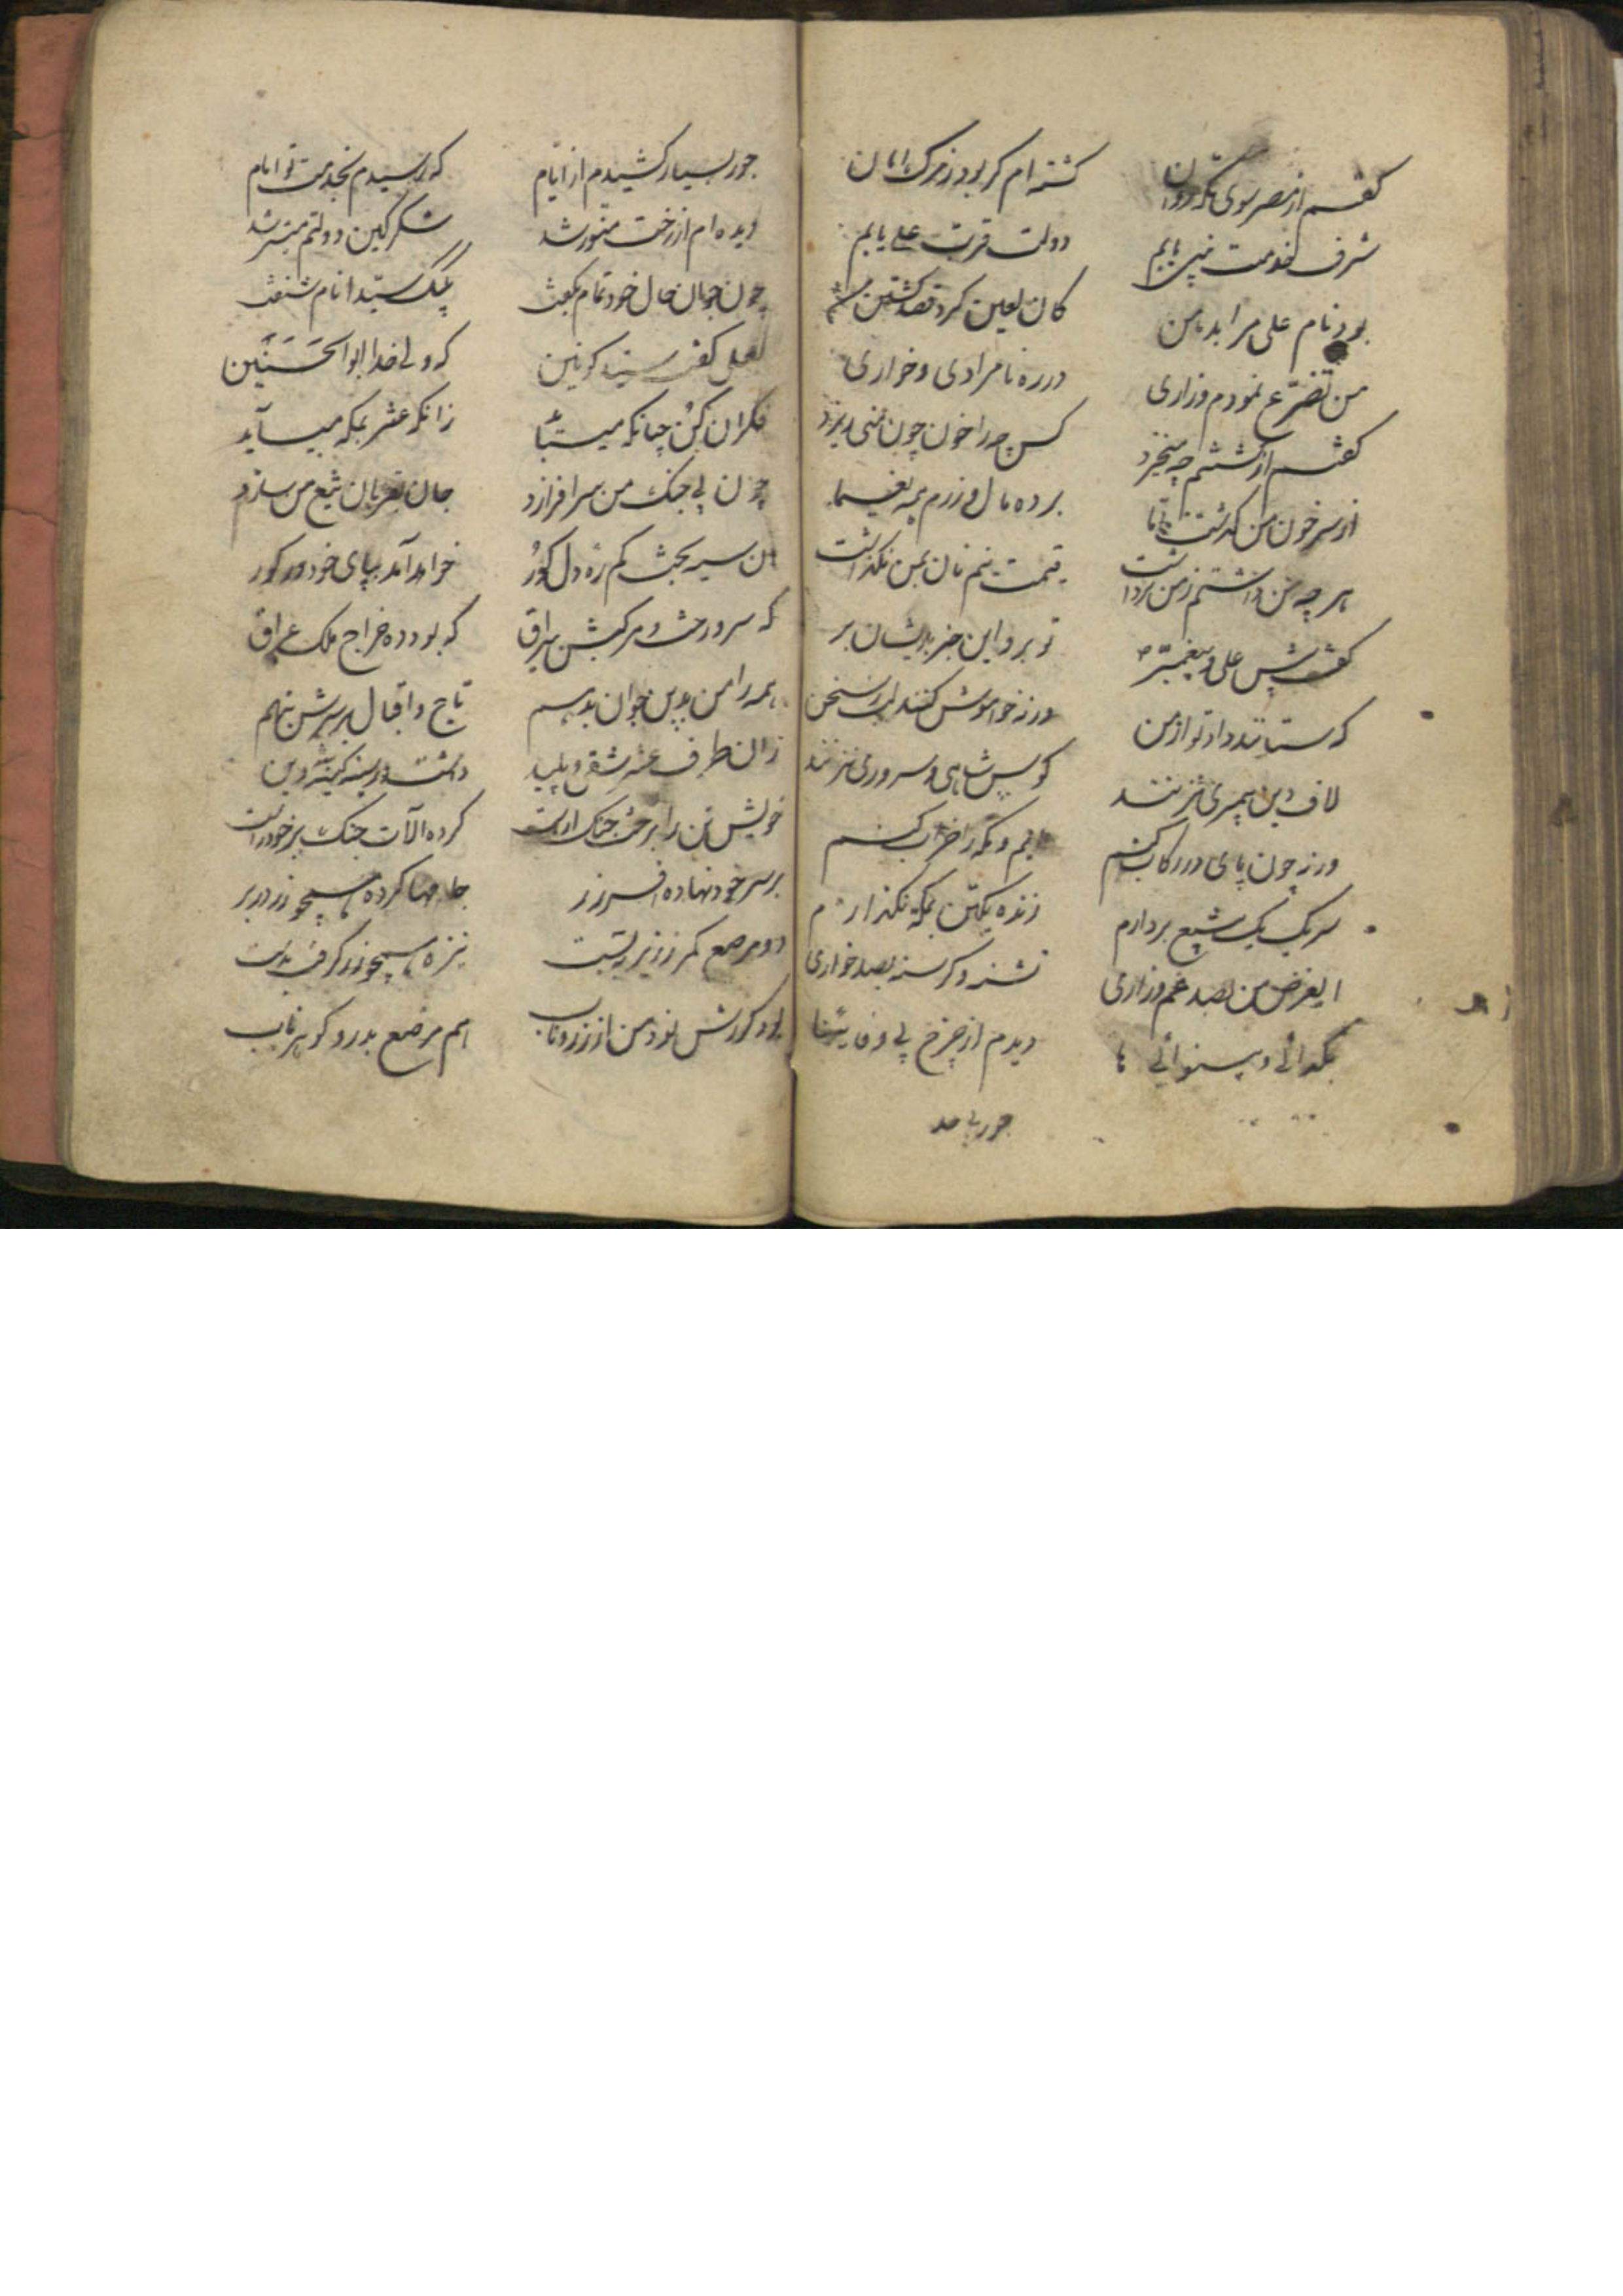 گفتم از مصر سوی مکه روان کشته ام گر بود ز مرک امان
شرف خدمت نبی یابم دولت قربت علی یابم
بود نام علی مرا بدهن کان لعین کرد قصد کشتن من
من تضرع نمودم و زاری در ره نامرادی و خواری
گفتم از کشتنم چه میخیزد کس چرا خون چون منی ریزد
از سر خون من گذشت برده مال و زرم همه یغما
هر چه من داشتم ز من برداشت قیمت نیم نان بمن نگذاشت
گفت پیش علی و پیغمبر تو برو این خبر بدیشان بر
که ستانند داد تو از من ورنه خواموش کنند از سخن
لاف دین پیمبری نزنند کوس شاهی و سروری نزنند
ورنه چون پای در رکاب کنم آیم و مکه را خراب کنم
سر یک یک بتیغ بردارم زنده یکتن بمکه نگذارم
الغرض من بصد غم و زاری تشنه و گرسنه بصد خواری
بگدائی و بینوائی ها دیدم از چرخ بی وفائیها
جور بی حد
جور بسیار کشیدم از ایام که رسیدم بخدمت تو امام
دیده ام از رخت منور شد شکر کین دولتم میسر شد
چون جوان حال خود تمام بگفت یک بیک سید انام شنفت
بعلی گفت سید کونین که ولی خدا ابوالحسنین
فکر آن کن چنانکه میباید زانکه عنتر بمکه میآید
چون پی جنک من سر افرازد جان بقربان تیغ من سازد
آن سیه بخت گم ره دل کور خواهد آمد بپای خود در کور
که سر و رخت و مرکبش بیراق که بود ده خراج ملک عراق
همه را من بدین جوان بدهم تاج و اقبال بر سرش بنهم
زان طرف عنتر شقی و پلید داشت در سینه کینه دین
خویشتن را برخت جنک آراست کرده آلات جنک بر خود راست
بر سر خود نهاده افسر زر جامها کرده همچو زر در بر
دو مرصع کمر ز زیر ببست نیزه همچو زر گرفت بدست
بود گورش نمودمن از زر ناب اسم مرصع بدر و گوهر ناب